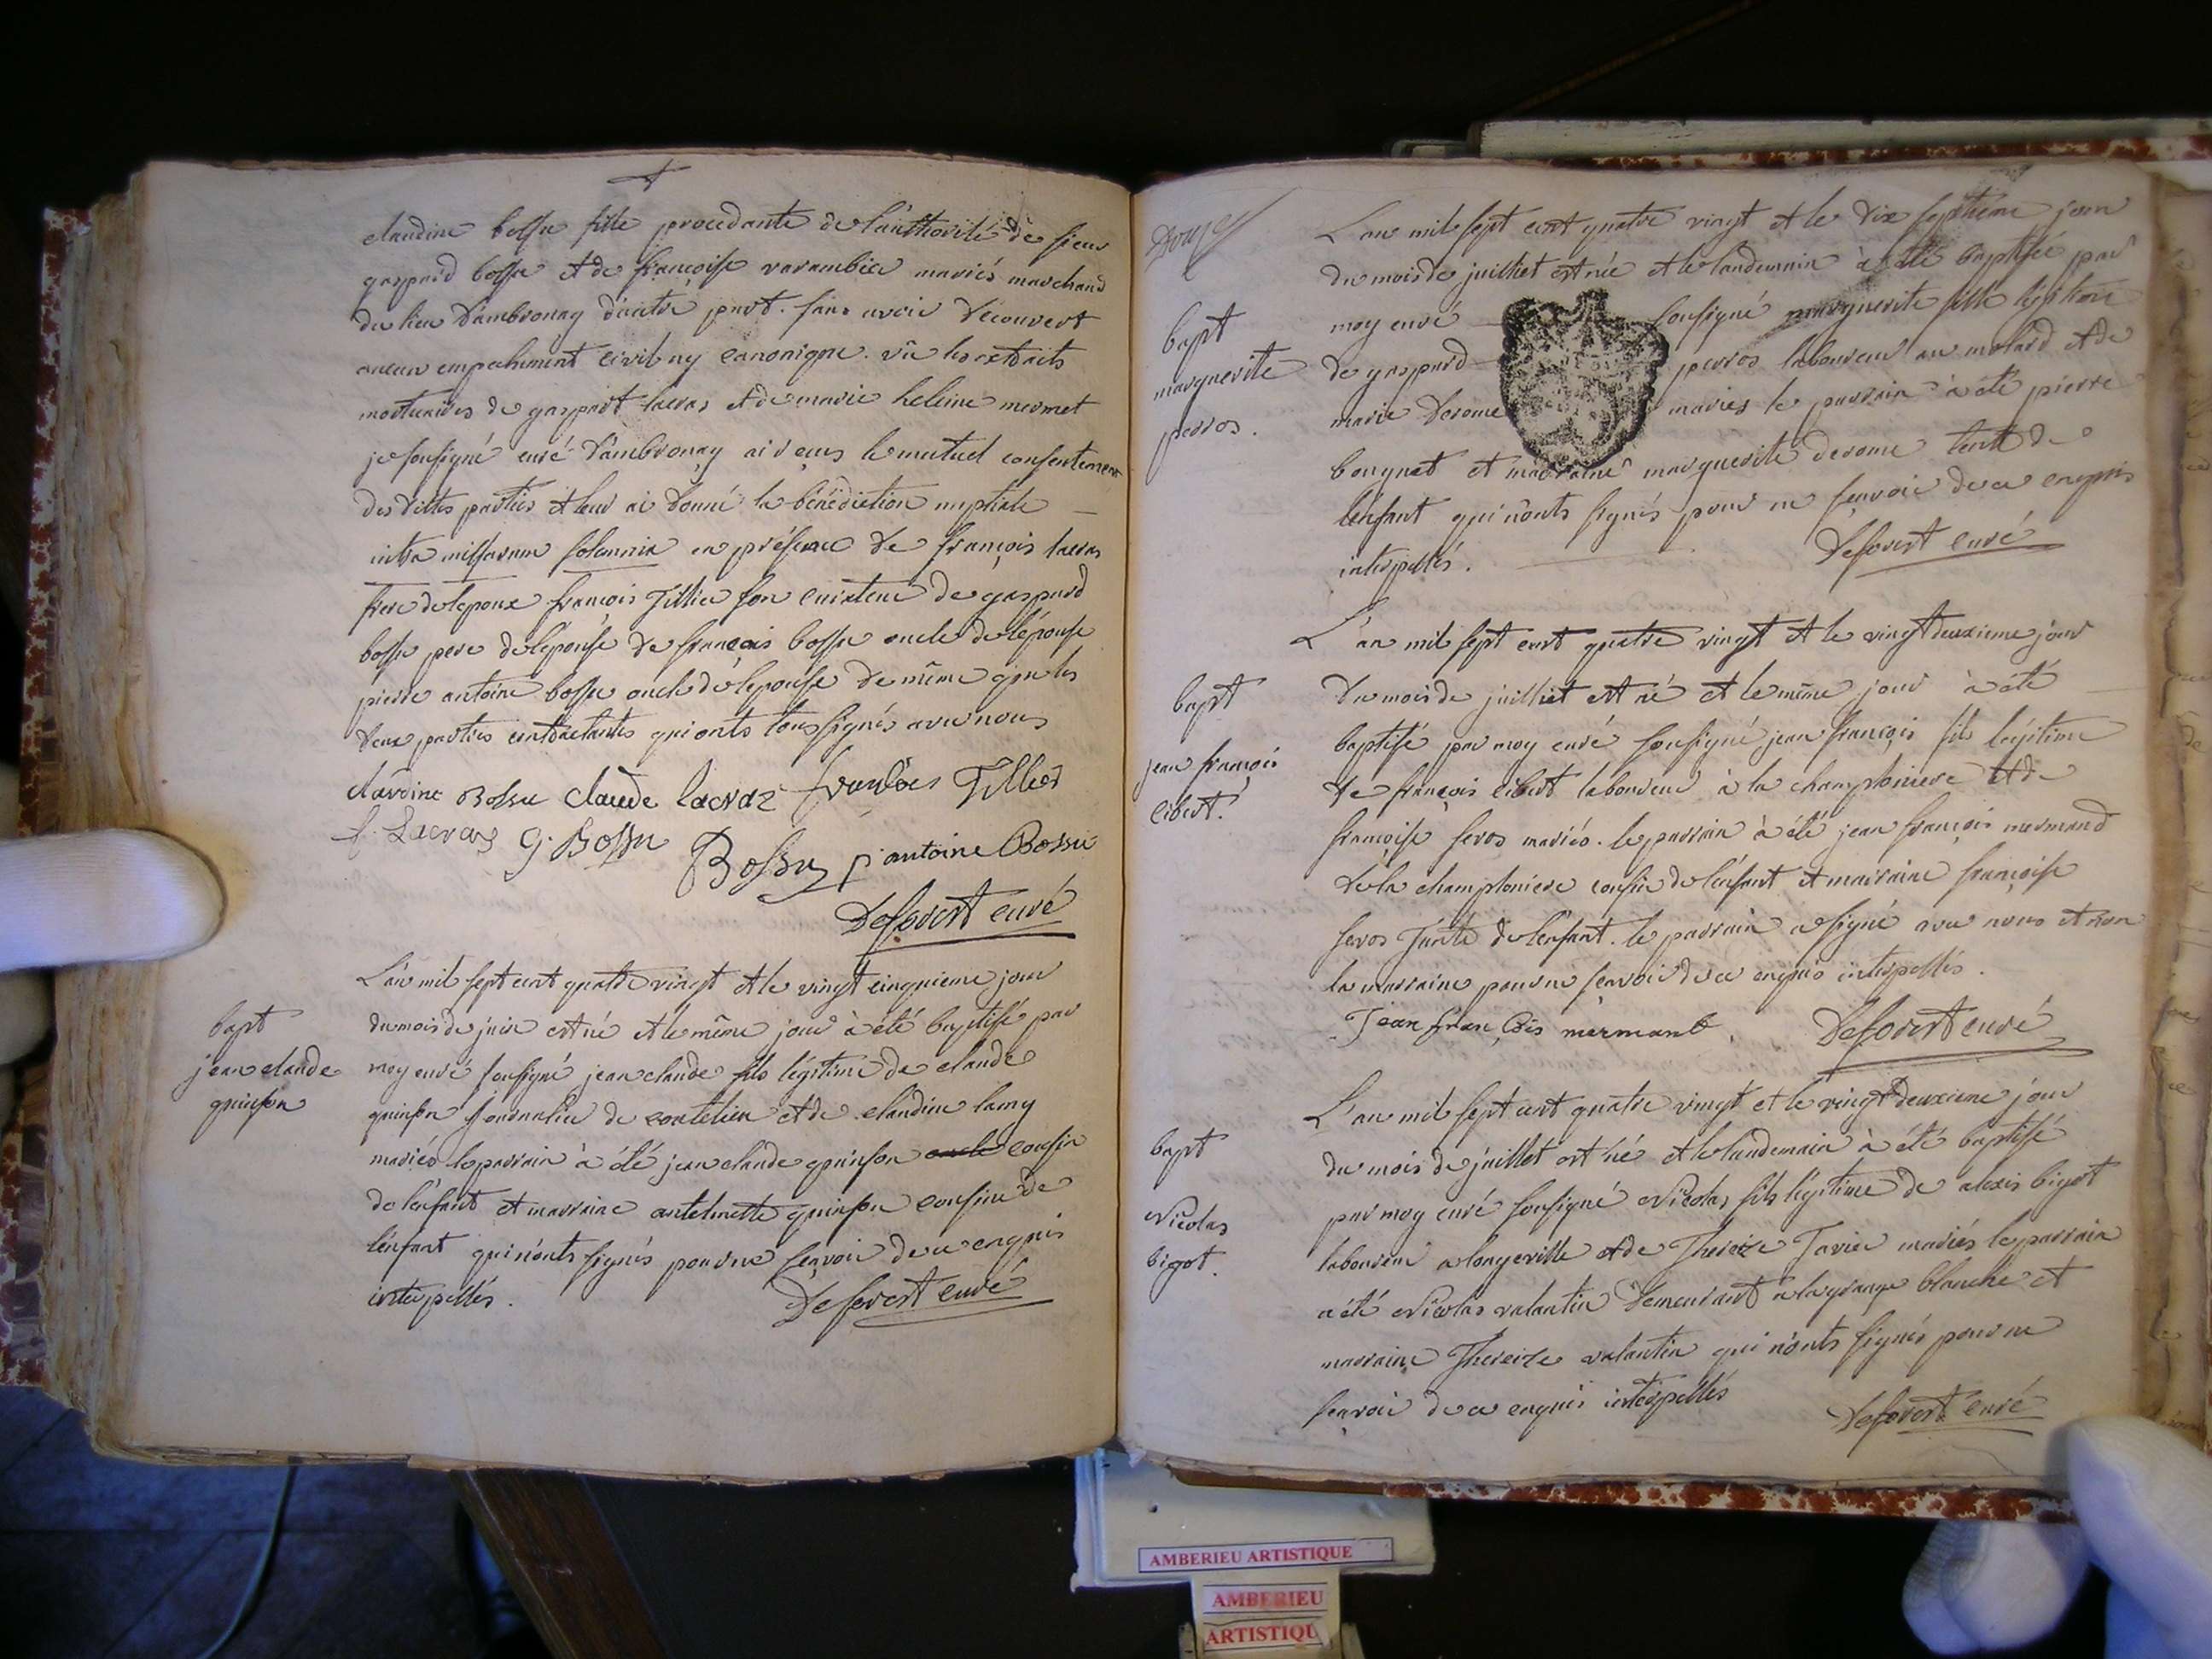 claudine bossu fille procedante de l'authorité de sieur
gaspard bossu et de françoise varambier mariés marchand
du lieu d'ambronay d'autre part. sans avoir découvert
aucun empechement civil ny canonique. vû les extraits
mortuaires de gaspart lacras et de marie heleine mermet
je sousigné curé d'ambronay ai reçus le mutuel consentement
des dittes parties et leur ai donné la bénédiction nuptiale
intra missarum solemnia en présence de françois lacras
frere de lepoux françois Tillier son curateur de gaspard
bossu pere de lépouse de françois bossu oncle de lépouse
pierre antoine bossu oncle de lepouse de même que les
deux parties contractantes qui onts tous signés avec nous
claudine Bossu claude lacraz françois Tillier
f. Lacras G. Bossu Bossu p antoine Bossu
Desovert curé
bapt
jean claude
quinson
L'an mil sept cent quatre vingt et le vingt cinquieme jour
du mois de juin est né et le même jour à été baptisé par
moy curé sousigné jean claude fils légitime de claude
quinson journalier de coutelieu et de claudine lamy
mariés le parrain à été jean claude quinson oncle cousin
de lenfant et marraine antelmette quinson cousine de
lénfant qui n'onts signés pour ne sçavoir de ce enquis
interpellés.
Desovert curé
Douze
bapt
marguerite
perros.
L'an mil sept cent quatre vingt et le dix septieme jour
du mois de juilliet est née et le landemain à été baptisée par
moy curé sousigné marguerite fille legitime
de gaspard perros laboureur au molard et de
marie derome mariés le parrain à été pierre
bouquet et marraine marguerite derome tente de
lénfant qui n'onts signés pour ne sçavoir de ce enquis
interpellés.
Desovert curé
bapt
jean françois
cibert.
L'an mil sept cent quatre vingt et le vingt deuxieme jour
du mois de juilliet est né et le même jour à été
baptisé par moy curé sousigné jean françois fils legitime
de françois cibert laboureur à la championiere et de
françoise seros mariés. le parrain à été jean françois mermand
de la championiere cousin de lénfant et marraine françoise
seros tante de lenfant. le parrain a signé avec nous et non
la marraine pour ne sçavoir de ce enquis interpellés.
Jean françois mermand. Desovert curé
bapt
Nicolas
bigot.
L'an mil sept cent quatre vingt et le vingt deuxieme jour
du mois de juillet est né et le landemain à été baptisé
par moy curé sousigné Nicolas fils légitime de alexis bigot
laboureur a longeville et de Thereize Tavier mariés le parrain
a été Nicolas valantin demeurant a la grange blanche et
marraine Thereize valantin qui n'onts signés pour ne
sçavoir de ce enquis interpellés
Desovert curé
AMBERIEU ARTISTIQUE
AMBERIEU
ARTISTIQU